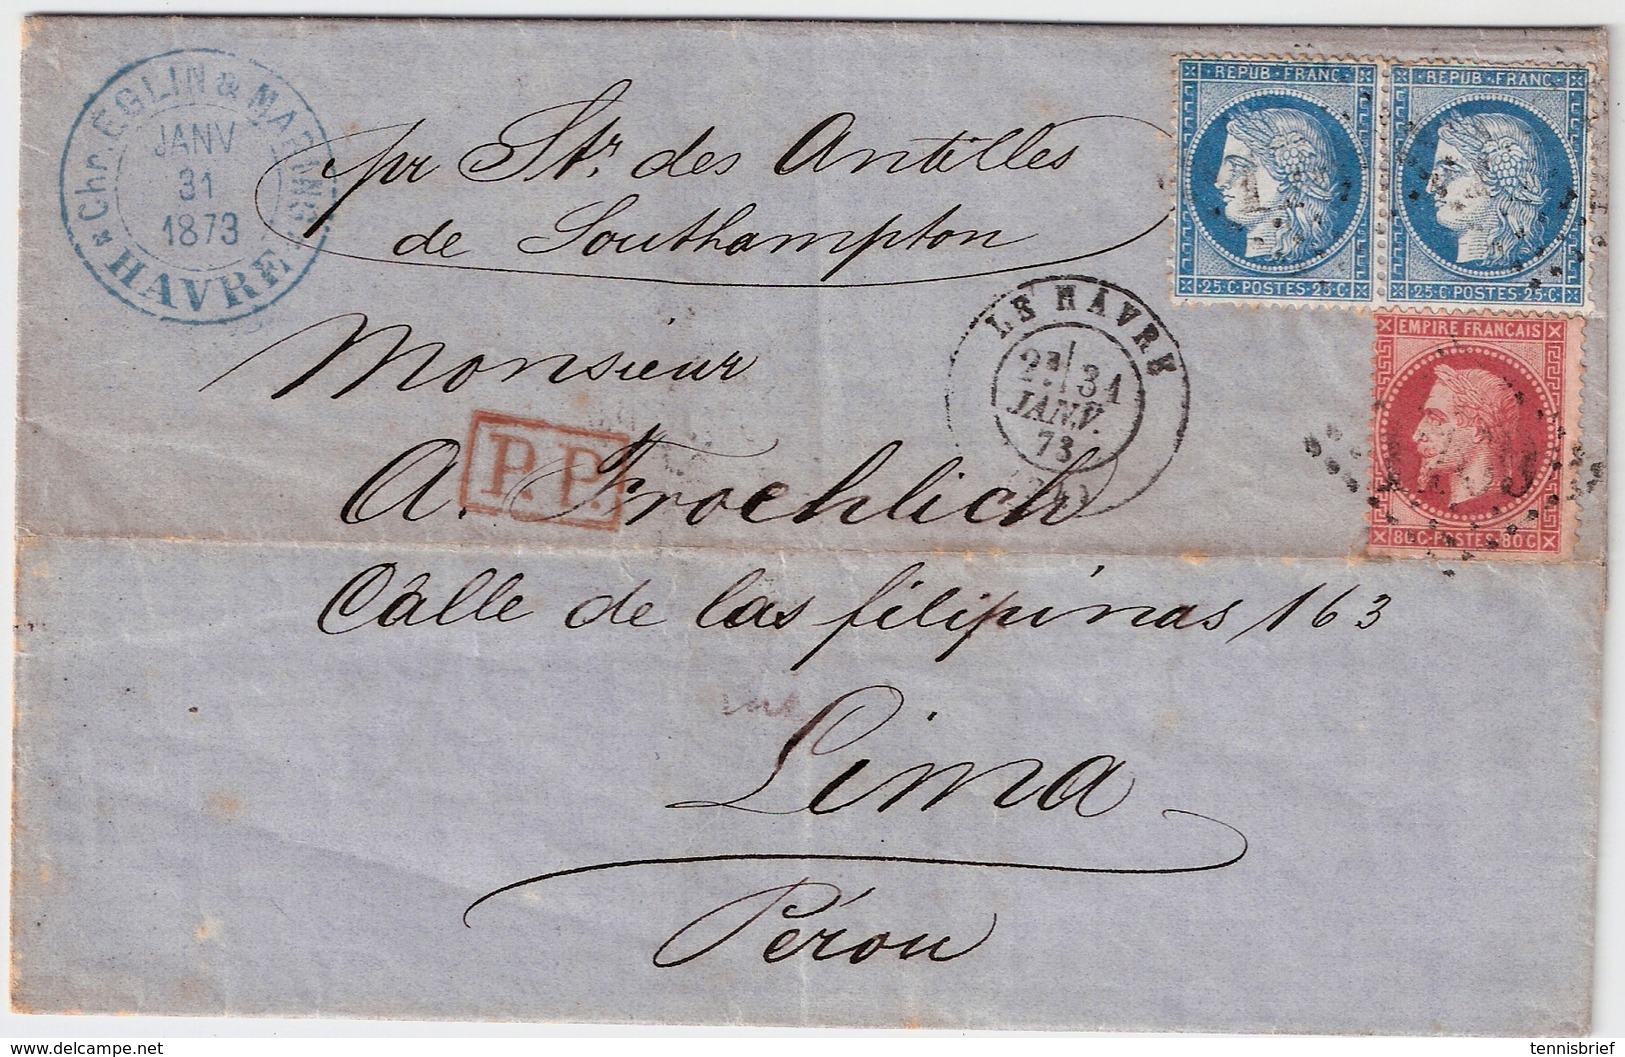 Chr. EGLIN & MARING
JANV
31
1873
HAVRE
pr Str. des Antilles
de Southampton
REPUB · FRANC
25 · C · POSTES · 25 · C
REPUB · FRANC
25 · C · POSTES · 25 · C
EMPIRE FRANÇAIS
80 C · POSTES · 80 C
LE HAVRE
2E/ 31
JANV.
73
Monsieur
P.P.
A. Froehlich
Calle de las filipinas 163
Lima
Pérou
delcampe.net
tennisbrief